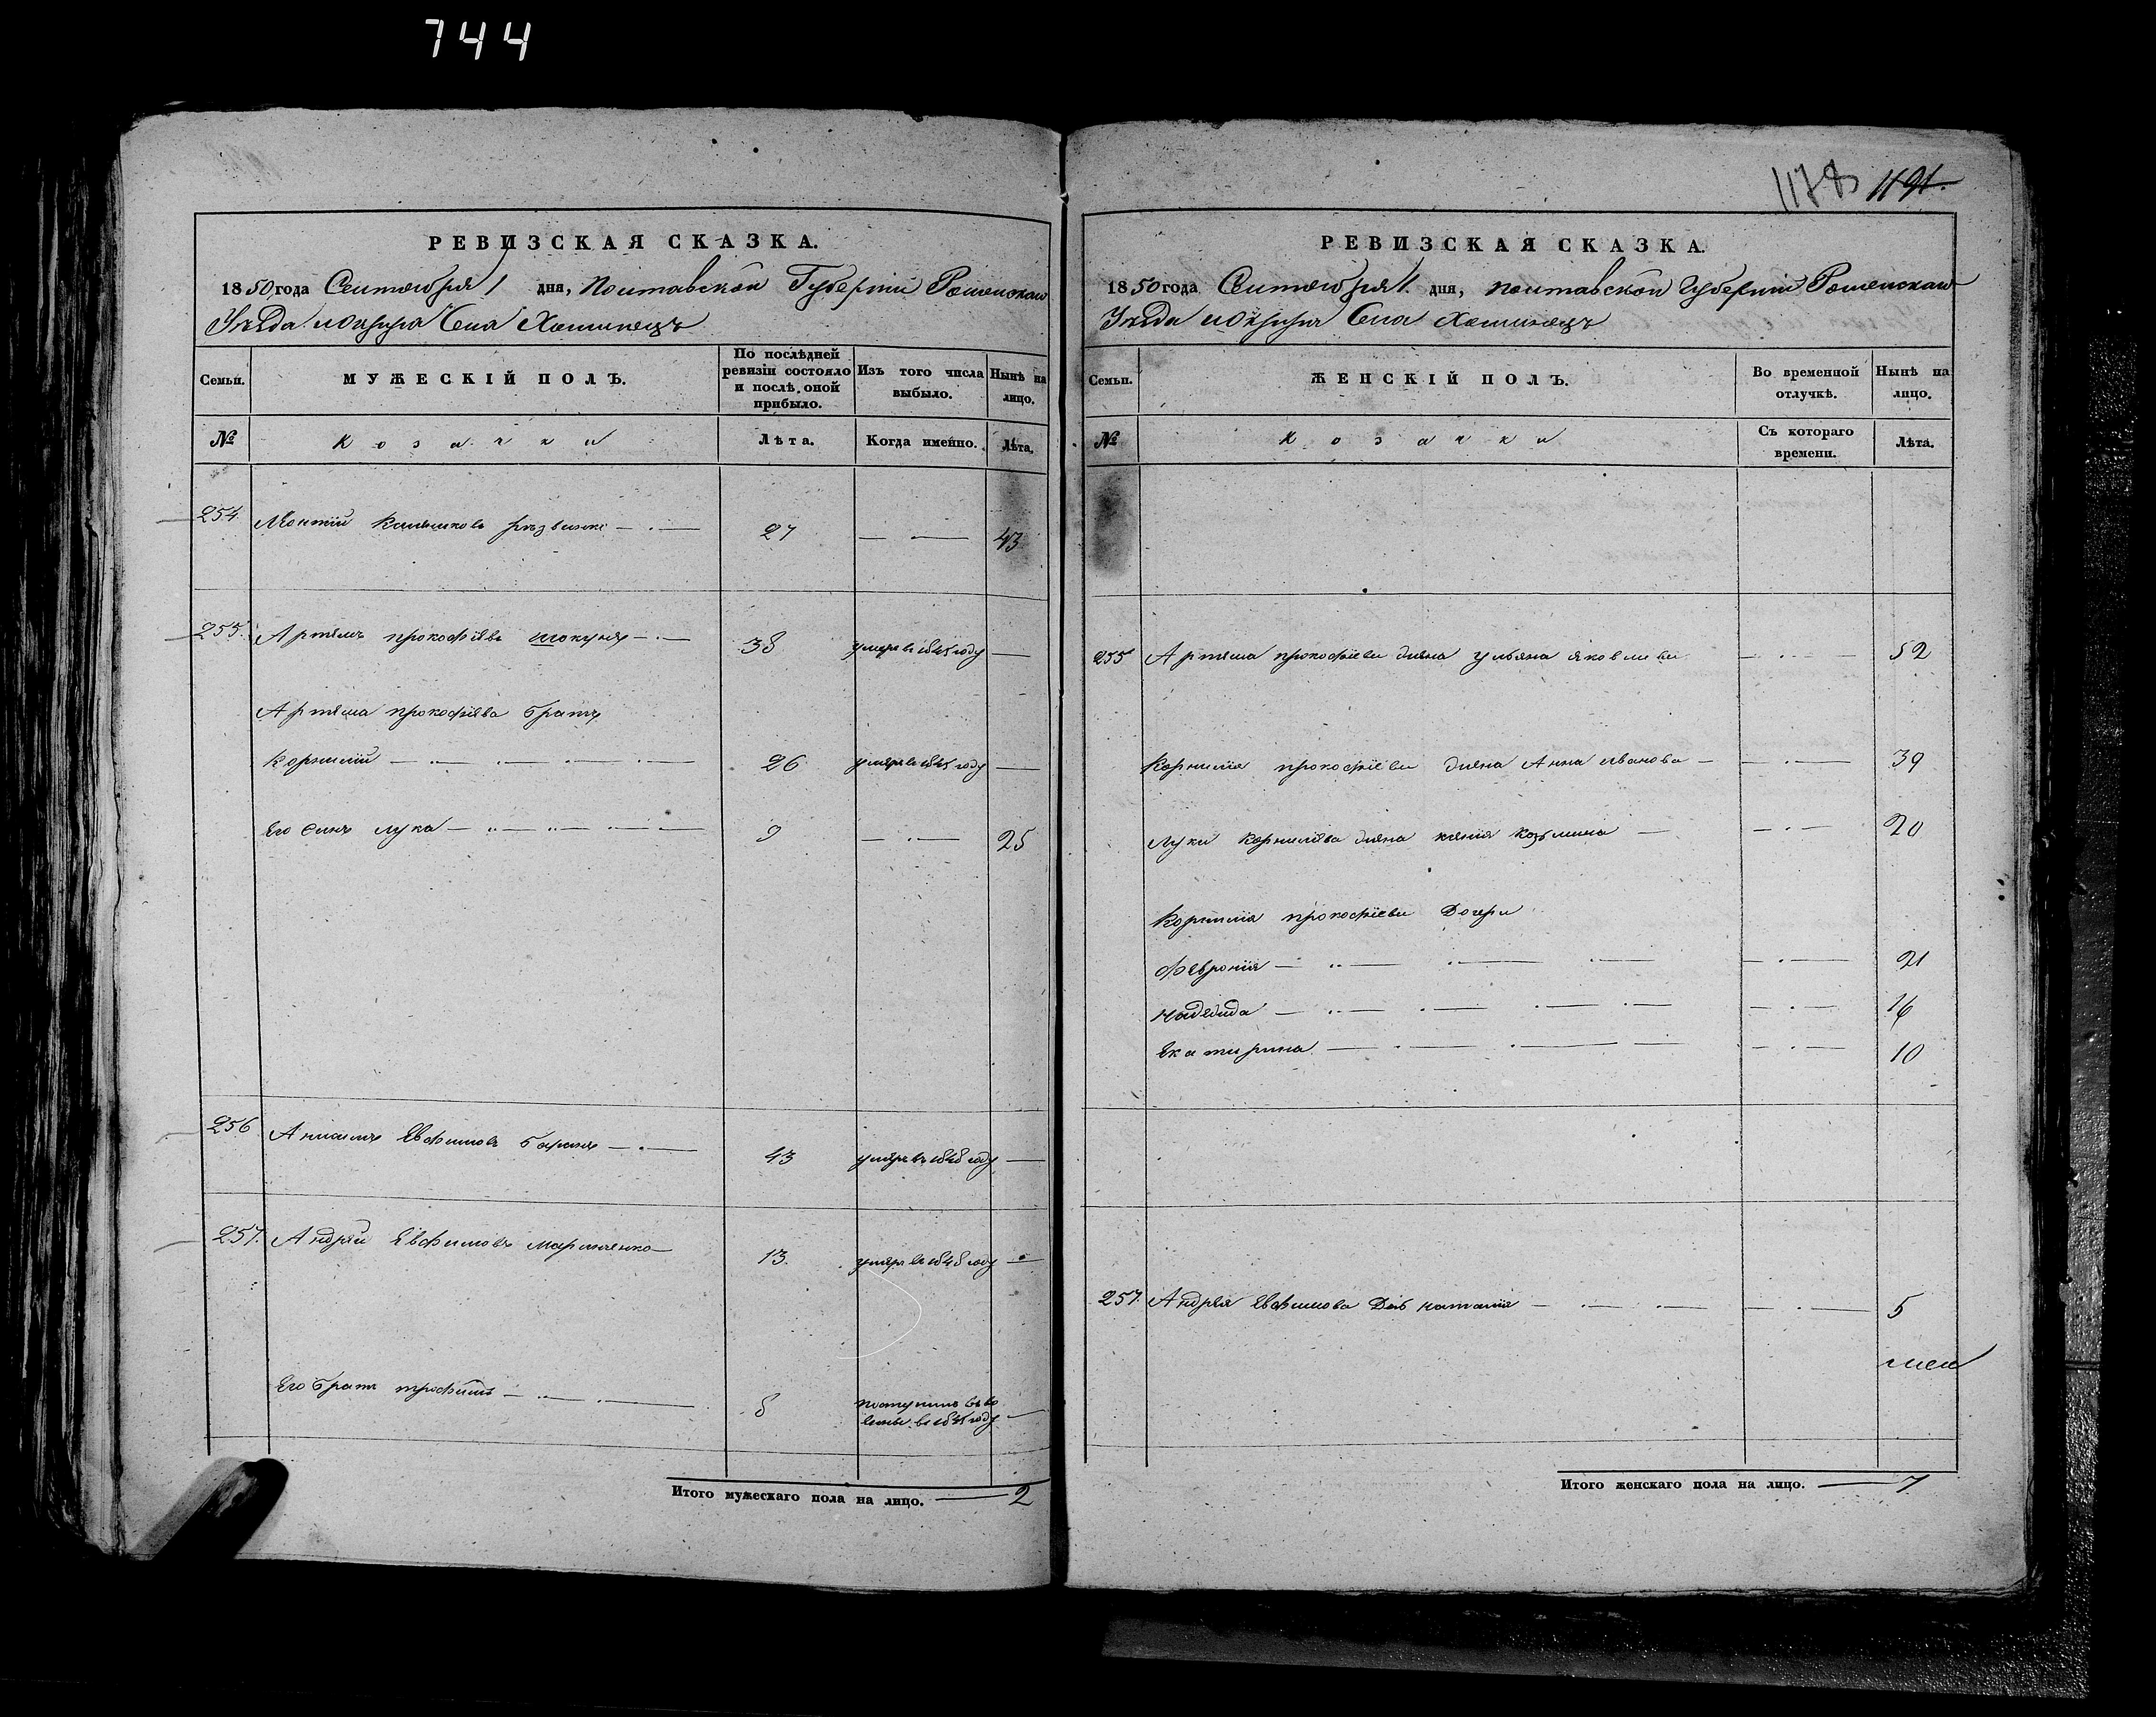 744
1178 1191.
РЕВИЗСКАЯ СКАЗКА.
1850 года Сентября 1 дня, Полтавской Губерніи Роменскаго
Уезда Села Хоминецъ
Семьи.
МУЖЕСКІЙ ПОЛЪ.
По послѣдней ревизіи состояло и послѣ оной прибыло.
Изъ того числа выбыло.
Нынѣ на лицо.
№
козачки
Лѣта.
Когда именно.
Лѣта.
254 27 — 43
255. Артемъ прокофіевъ шокунъ — 38 умеръ в 1845 году —
Артема прокофіева братъ
Корнилій — 26 умеръ в 1845 году —
Его Синъ лука — 9 — 25
256 Евфимовъ — 43 умеръ въ 1848 году —
257. Андрей Евфимовъ Мартиненко 13. умеръ в 1848 году —
Его братъ трофимъ — 8 поступилъ
году —
Итого мужескаго пола на лицо. — 2
РЕВИЗСКАЯ СКАЗКА.
1850 года Сентября 1. дня, полтавской Губерніи Роменскаго
Уезда Села Хоминецъ
Семьи.
ЖЕНСКІЙ ПОЛЪ.
Во временной отлучкѣ.
Нынѣ на лицо.
№
козачки
Съ котораго времени.
Лѣта.
255 Артема прокофіева жена ульяна яковлева — 52
Корнилія прокофіева жена Анна иванова — 39
Луки Корниліева жена ксенія козьмина — 20
Корнилія прокофіева Дочери
Февронія — 21
надежда — 16
Екатирина — 10
257. Андрея Евфимова Дочь наталія — 5
Итого женскаго пола на лицо. — 7